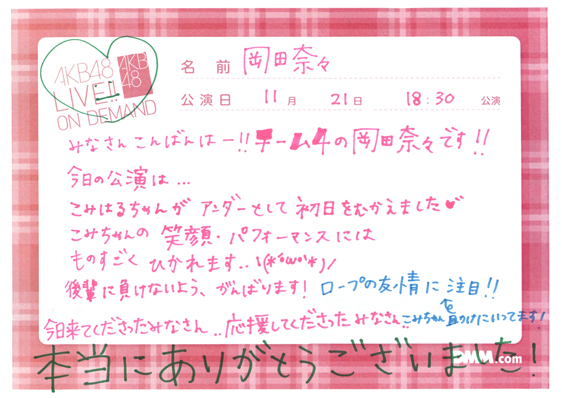 AKB48
LIVE!!
ON DEMAND
AKB
48
名前 岡田奈々
公演日 11月 21日 18:30 公演
みなさんこんばんはー!!チーム4の岡田奈々です!!
今日の公演は...
こみはるちゃんが アンダーとして 初日をむかえました♥
こみちゃんの 笑顔・パフォーマンスには
ものすごく ひかれます..\(*'ω'*)/
後輩に負けないよう、がんばります! ロープの友情に注目!!
を
こみちゃん
にいってます!
今日来てくださったみなさん..応援してくださったみなさん..
本当にありがとうございました!
DMM.com